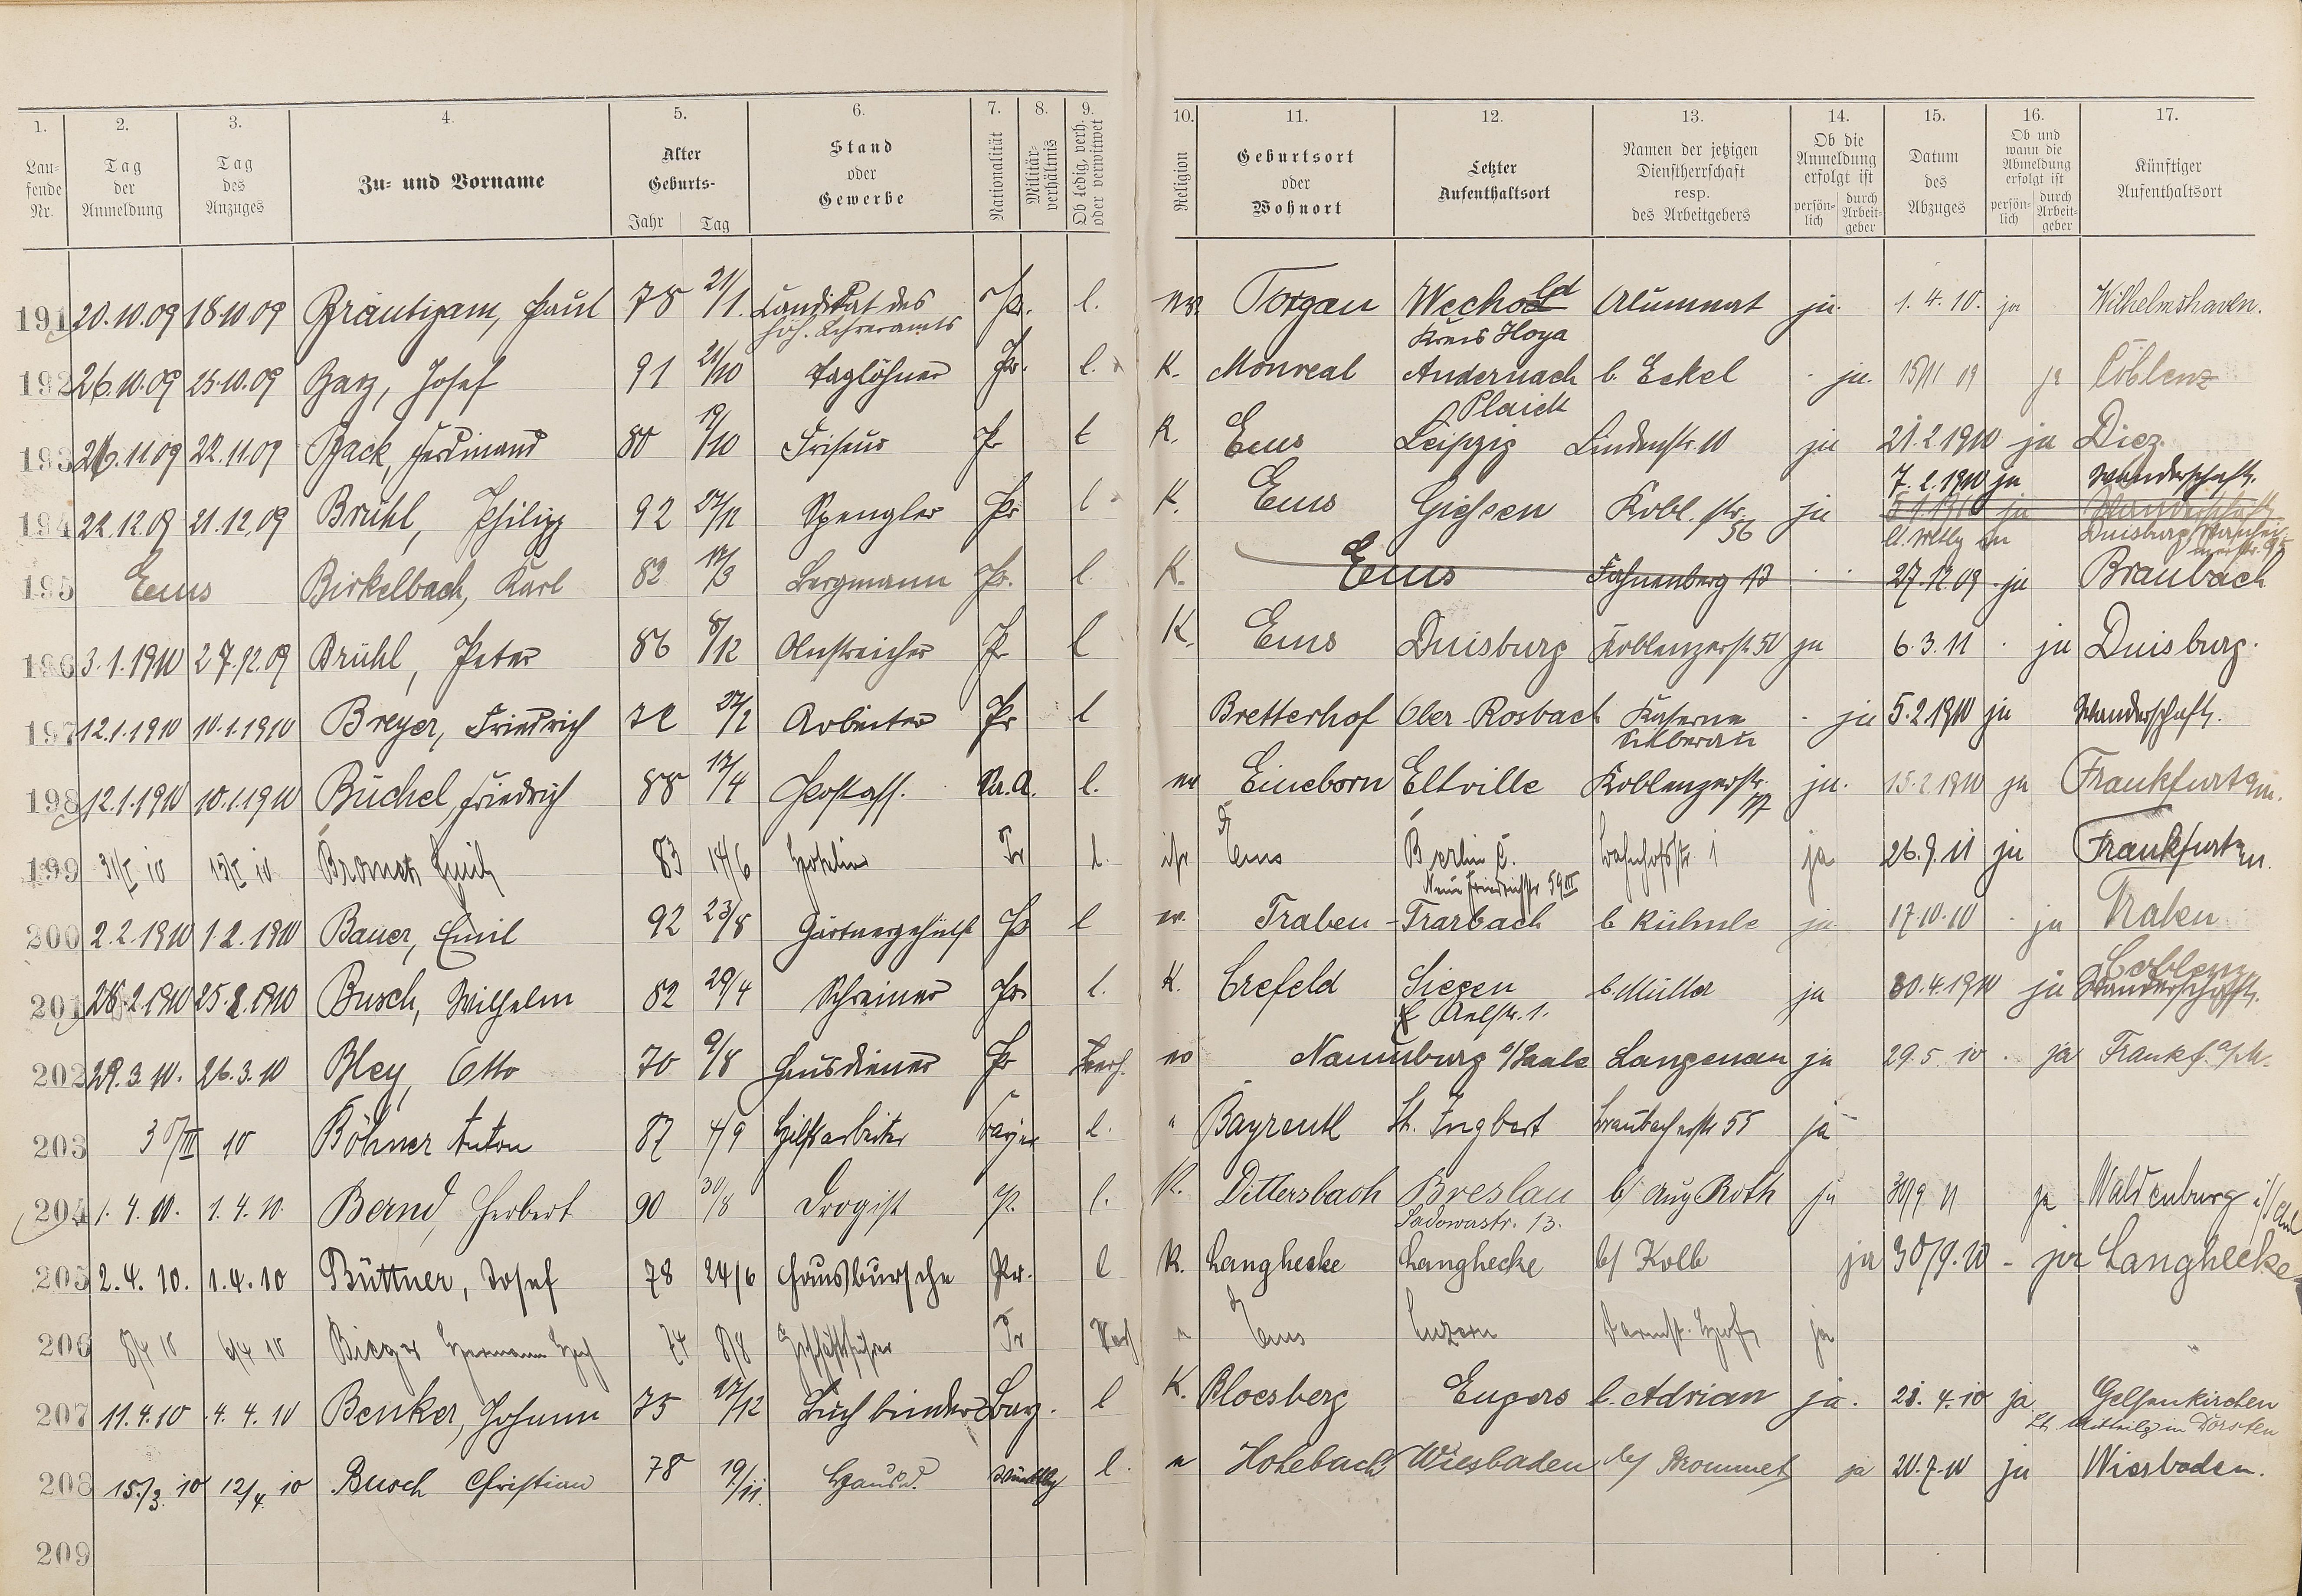 1. 2. 3. 4. 5. 6. 7. 8. 9. 10. 11. 12. 13. 14. 15. 16. 17.
Lau-
fende
Nr.
Tag
der
Anmeldung
Tag
des
Anzuges
Zu- und Vorname
Alter
Geburts-
Jahr Tag
Stand
oder
Gewerbe
Nationalität
Militär-
verhältnis
Ob ledig, verh.
oder verwitwet
Religion
Geburtsort
oder
Wohnort
Letzter
Aufenthaltsort
Namen der jetzigen
Dienstherrschaft
resp.
des Arbeitgebers
Ob die
Anmeldung
erfolgt ist
persön-
lich
durch
Arbeit-
geber
Datum
des
Abzuges
Ob und
wann die
Abmeldung
erfolgt ist
persön-
lich
durch
Arbeit-
geber
Künftiger
Aufenthaltsort
191 20.10.09 18.10.09 Bräutigam, Paul 78 21/1. Kandidat des Pr. l. ev. Torgau Wechold Alumnat ja. 1.4.10. ja Wilhelmshaven.
höh. Lehreramts Kreis Hoya
192 26.10.09 25.10.09 Josef 91 21/10 Taglöhner Pr. l. K. Monreal Andernach b. Eckel ja. 15/11 09 ja Coblenz
Plaick
193 26.11.09 22.11.09 Back, Ferdinand 80 19/10 Friseur Pr l K. Ems Leipzig Lindenstr. 10 ja 21.2.1910 ja Diez.
7.2.1910 ja Wanderschaft.
194 22.12.09 21.12.09 Brühl, Philipp 92 27/12 Spengler Pr l K. Ems Giessen Kobl. str. 56 ja
Duisburg
195 Ems Birkelbach, Karl 82 17/3 Bergmann Pr. l. K. Ems Fahnenberg 13 27.12.09 ja Braubach
196 3.1.1910 27.12.09 Brühl, Peter 86 8/12 Anstreicher Pr l K. Ems Duisburg Koblenzerstr. 50 ja 6.3.11 ja Duisburg.
197 12.1.1910 10.1.1910 Breyer, Friedrich 72 27/2 Arbeiter Pr l Bretterhof Ober-Rosbach Kaserne ja 5.2.1910 ja Wanderschaft.
Silberau
198 12.1.1910 10.1.1910 Büchel, Friedrich 88 17/4 Postass. l. ev Eineborn Eltville Koblenzerstr. 77 ja. 15.2.1910 ja Frankfurt a/m.
199 31/I 10 15/I 10 Emil 83 14/6 Hotelier Pr l. isr Ems Berlin C. Bahnhofstr. 1 ja 26.9.11 ja Frankfurt a/m.
Neue Friedrichstr 59 III
200 2.2.1910 1.2.1910 Bauer, Emil 92 23/8 Gärtnergehülfe Pr l ev. Traben-Trarbach b Kühnle ja 17.10.10 ja Traben
Coblenz
201 28.2.1910 25.2.1910 Busch, Wilhelm 82 29/4 Schreiner Pr. l. K. Crefeld Siegen b. Müller ja 30.4.1910 ja Wanderschaft.
202 29.3.10. 26.3.10 Bley, Otto 70 9/8 Hausdiener Pr Verh. ev Naumburg a/Saale Langenau ja 29.5.10 ja Frankf. a/M.
203 30/III 10 Böhner Anton 87 4/9 Hilfsarbeiter Bayer l. " Bayreuth St. Ingbert Braubacherstr 55 ja
204 1.4.10. 1.4.10. Bernd, Herbert 90 30/8 Drogist Pr. l. K. Dittersbach Breslau b/ Aug Roth ja 30/9 11 ja Waldenburg i/Schl
Sadowastr. 13.
205 2.4.10. 1.4.10 Büttner, Josef 78 24/6 Hausbursche Pr. l K. Langhecke Langhecke b/ Kolb ja 30/9.10 - ja Langhecke
206 8/4 10 6/4 10 Bieger Hermann 74 8/8 Geschäftsführer Pr Verh " Ems Luzern Darmst. Hof ja
207 11.4.10 4.4.10 Benker, Johann 75 27/12 Buchbinder Bay. l K. Blocsberg Engers b. Adrian ja. 28.4.10 ja Gelsenkirchen
Lt. Mitteilg in Dorsten
208 15./3. 10 12/4. 10 Busch Christian 78 19/11. Hausd. Württbg l. " Hohebach Wiesbaden b/ Brommet ja 20.7.10 ja Wiesbaden.
209